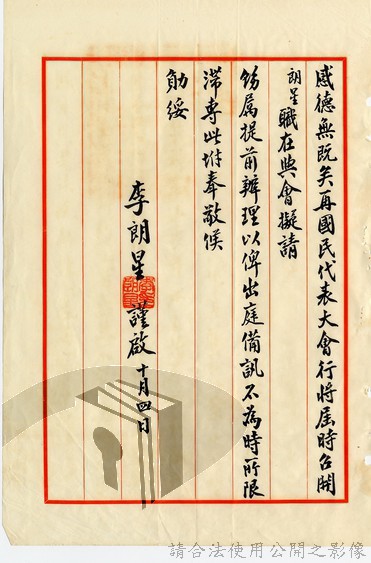 感德無既矣再國民代表大會行將屆時召開
朗星職在與會擬請
飭屬提前辦理以俾出庭備訊不為時所限
滞專此坿奉敬候
勛綏
李朗星謹啟十月四日
請合法使用公開之影像